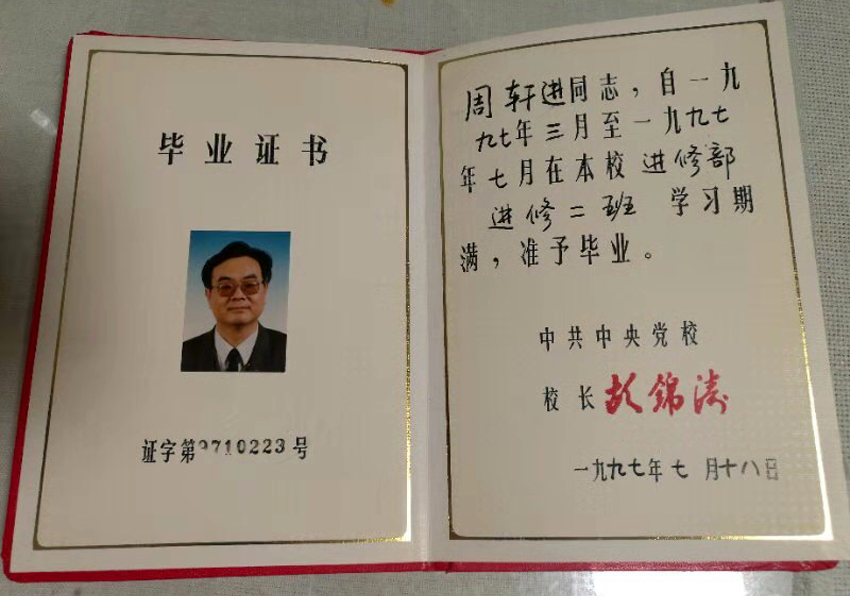 毕业证书
证字第9710223号
周轩进同志，自一九
九七年三月至一九九七
年七月在本校进修部
进修二班 学习期
满，准予毕业。
中共中央党校
校长胡锦涛
一九九七年七月十八日